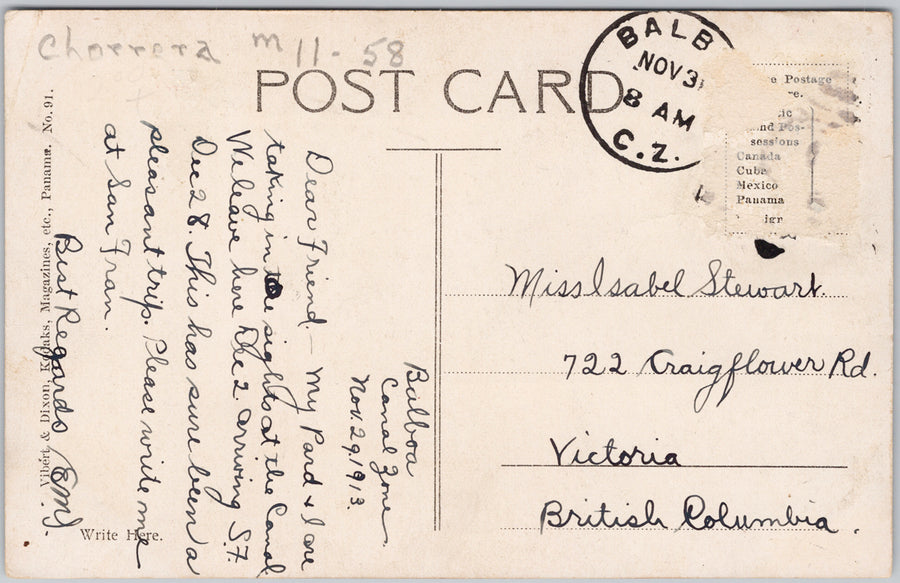 Chorrera m 11-58
POST CARD
BALB
NOV 3
8 AM
C.Z.
e Postage
re.
ic
nd Pos-
sessions
Canada
Cuba
Mexico
Panama
ign
Balboa
Canal Zone.
Nov. 29. 1913.
Dear Friend — My Pard & I are
taking in the sights at the Canal.
We leave here Dec 2 arriving S.F
Dec 28. This has sure been a
pleasant trip. Please write me
at San Fran.
Best Regards
Miss Isabel Stewart.
722 Craigflower Rd.
Victoria
British Columbia.
Vibert & Dixon, Kodaks, Magazines, etc., Panama. No. 91.
Write Here.